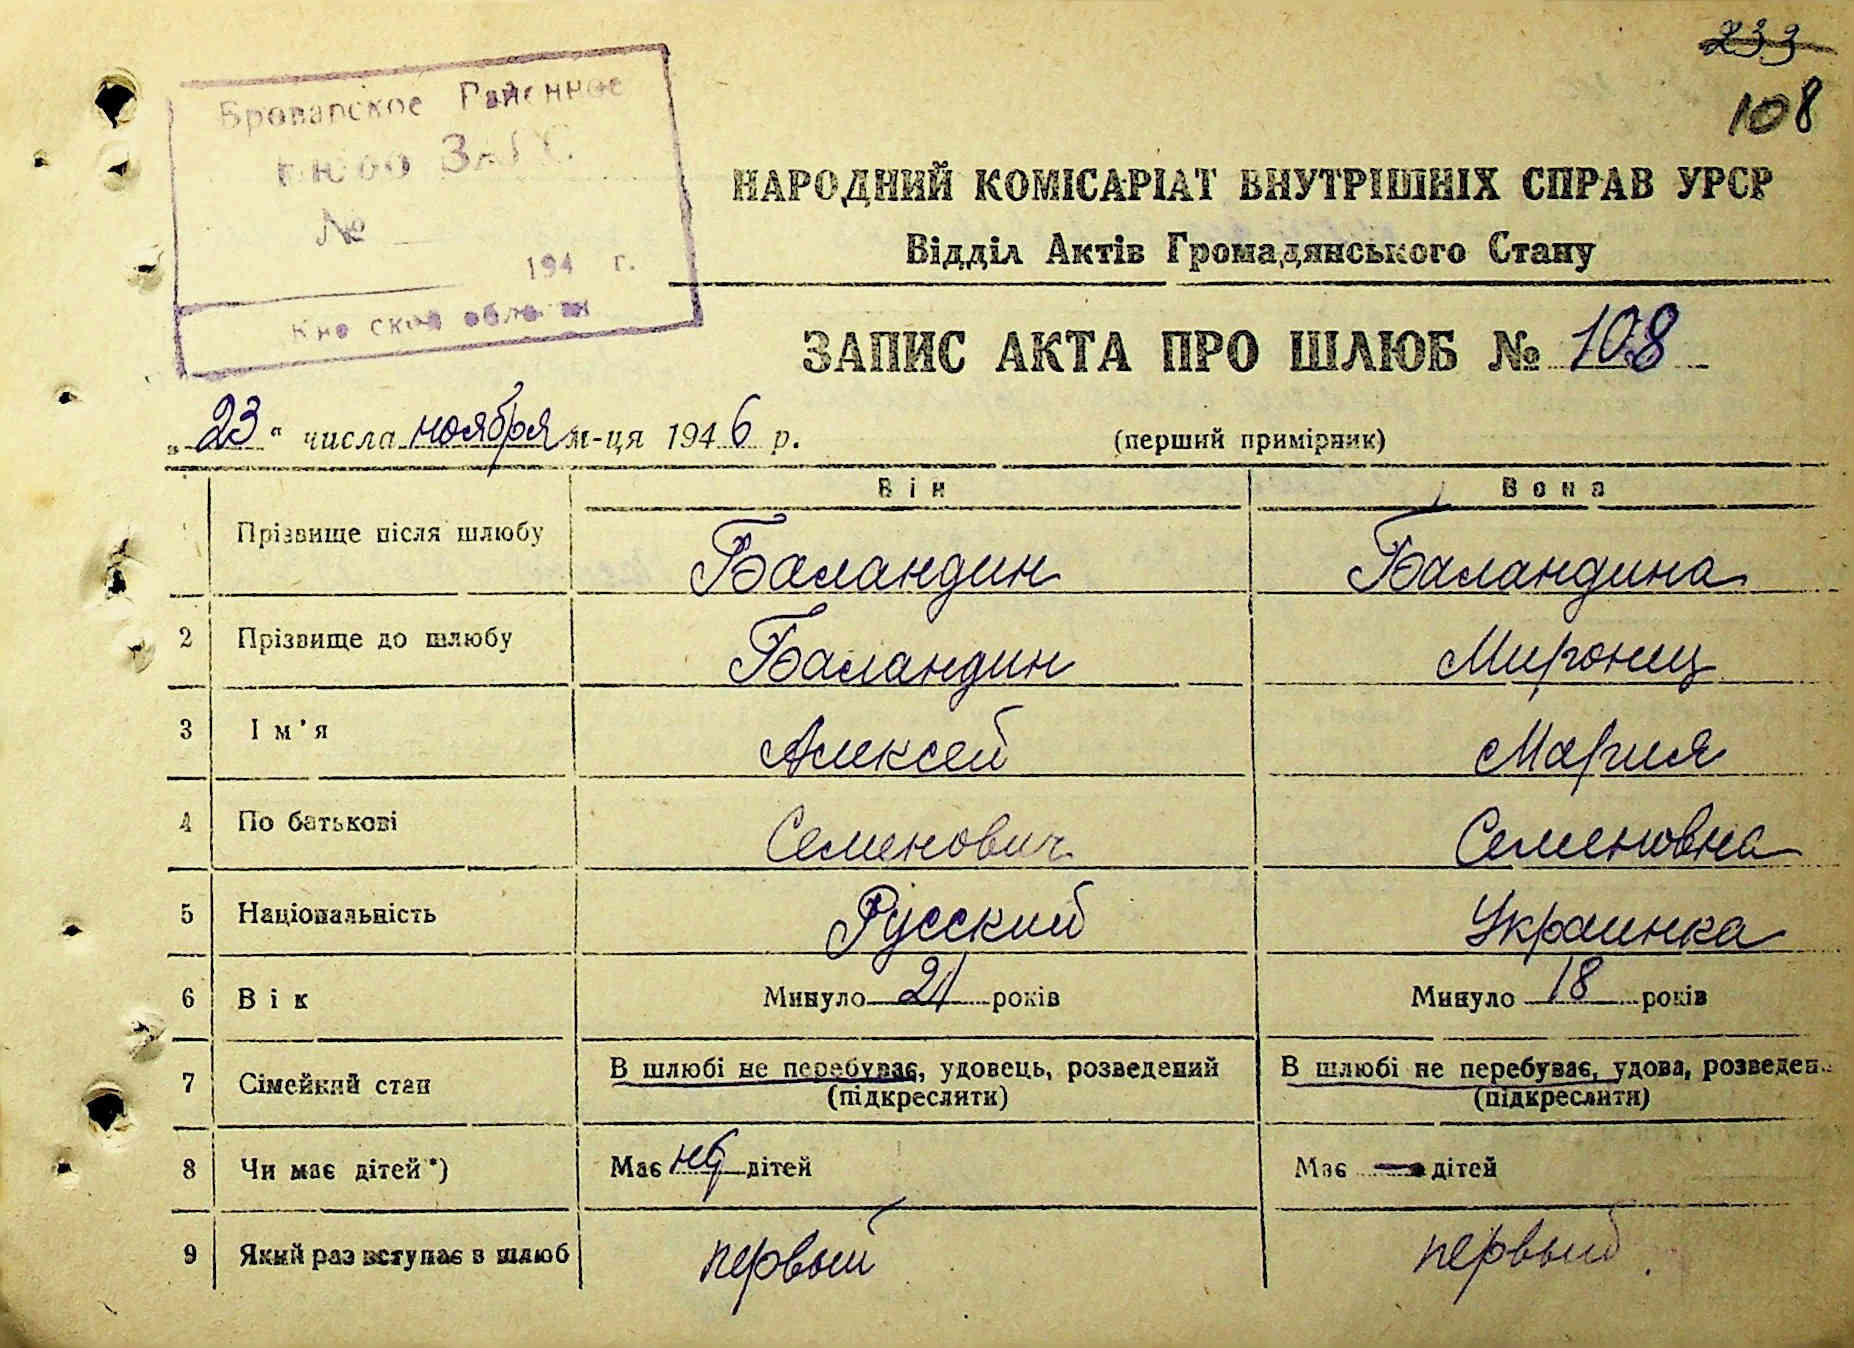 233
108
Броварское Районное
бюро ЗАГС
№
194 г.
Киевской области
НАРОДНИЙ КОМІСАРІАТ ВНУТРІШНІХ СПРАВ УРСР
Відділ Актів Громадянського Стану
ЗАПИС АКТА ПРО ШЛЮБ № 108
„23“ числа ноября м-ця 1946 р. (перший примірник)
Він Вона
Прізвище після шлюбу Баландин Баландина
2 Прізвище до шлюбу Баландин Миронец
3 Ім'я Алексей Мария
4 По батькові Семенович Семеновна
5 Національність Русский Украинка
6 Вік Минуло 21 років Минуло 18 років
7 Сімейний стан В шлюбі не перебуває, удовець, розведений В шлюбі не перебуває, удова, розведен
(підкреслити) (підкреслити)
8 Чи має дітей*) Має дітей Має — дітей
9 Який раз вступає в шлюб первый первый